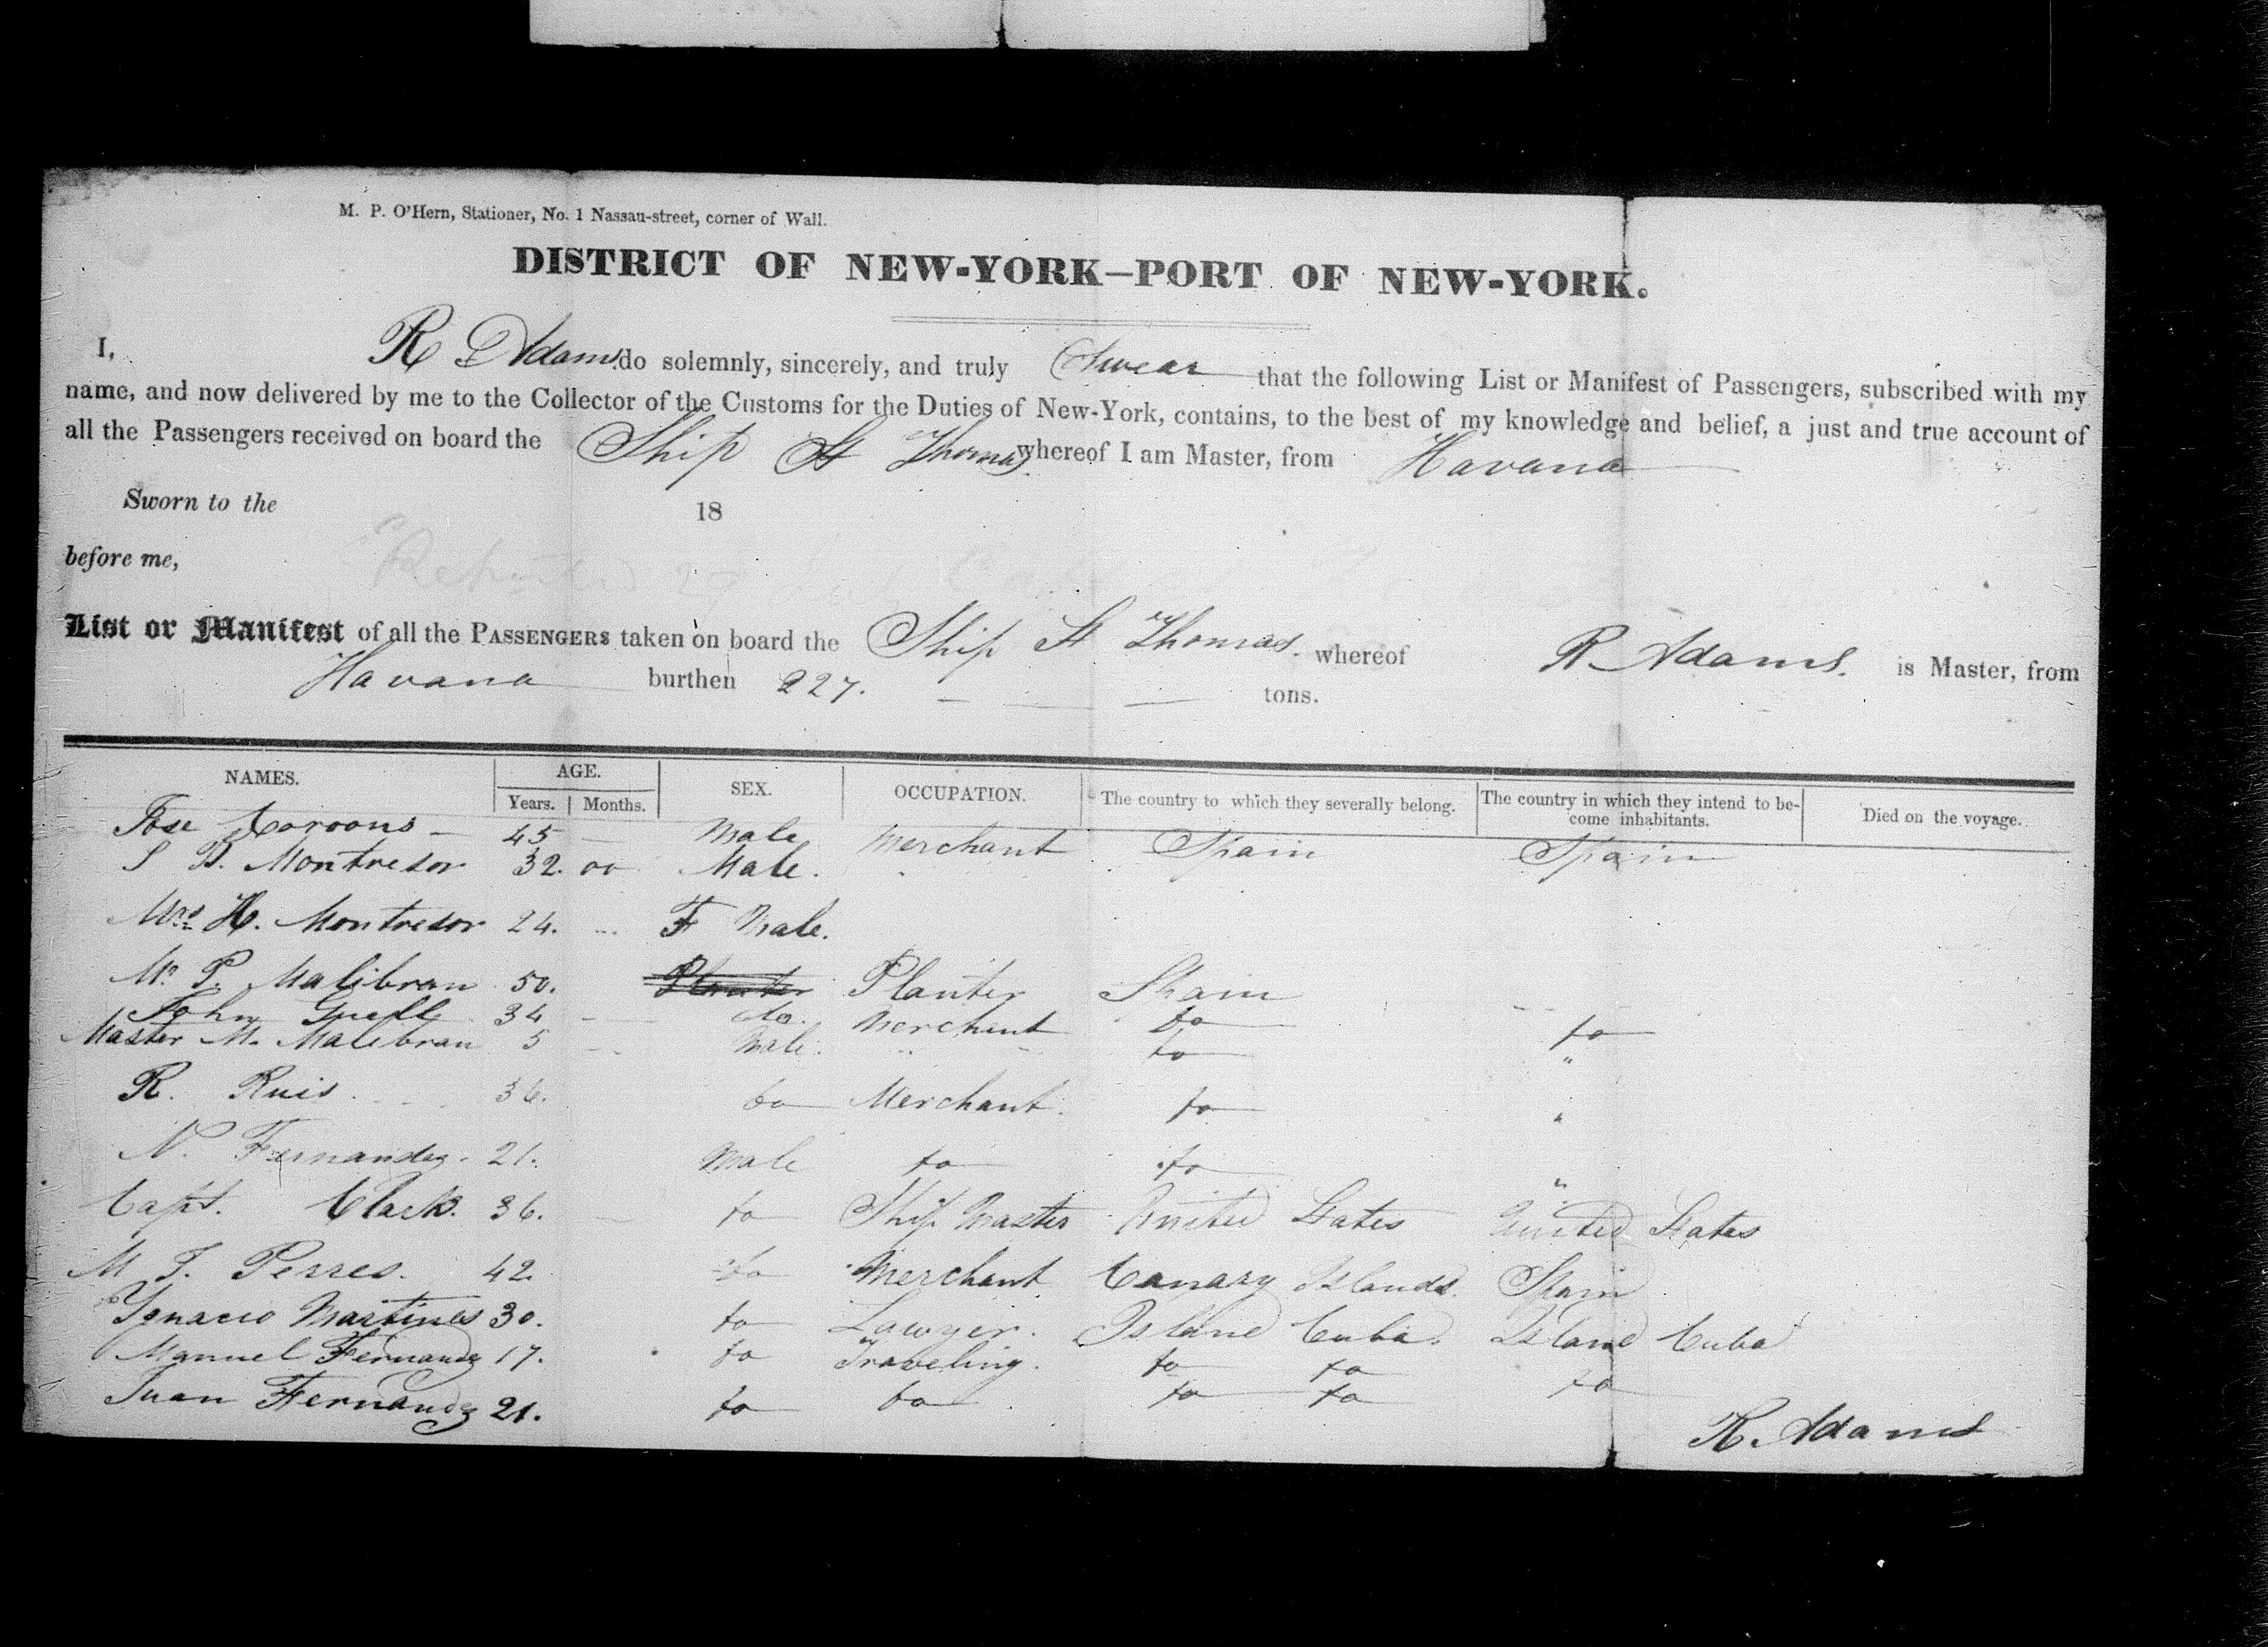 M. P. O'Hern, Stationer, No. 1 Nassau-street, corner of Wall.
DISTRICT OF NEW-YORK—PORT OF NEW-YORK.
I, R Adams do solemnly, sincerely, and truly Swear that the following List or Manifest of Passengers, subscribed with my
name, and now delivered by me to the Collector of the Customs for the Duties of New-York, contains, to the best of my knowledge and belief, a just and true account of
all the Passengers received on board the Ship St Thomas whereof I am Master, from Havana
Sworn to the 18
before me,
List or Manifest of all the PASSENGERS taken on board the Ship St Thomas. whereof R Adams. is Master, from
Havana burthen 227. tons.
NAMES. AGE. SEX. OCCUPATION. The country to which they severally belong. The country in which they intend to be-come inhabitants. Died on the voyage.
Years. Months.
Jose 45 Male Merchant Spain Spain
S B. Montresor 32. 00 Male.
Mrs H. Montresor 24. F Male.
Mr P. Malibran 50. Planter Planter Spain
John 34 do. Merchant do do
Master M. Malibran 5 Male. do "
R. Ruis 36. do Merchant. do "
N. Fernandez. 21. Male do do "
Capt. Clark. 36. do Ship Master United States United States
M J. Perres. 42. do Merchant Canary Islands. Spain
Ygnacio Martines 30. do Lawyer. Island Cuba. Island Cuba
Manuel Fernandez 17. do Traveling. do do do
Juan Fernandez 21. do do do do
R. Adams